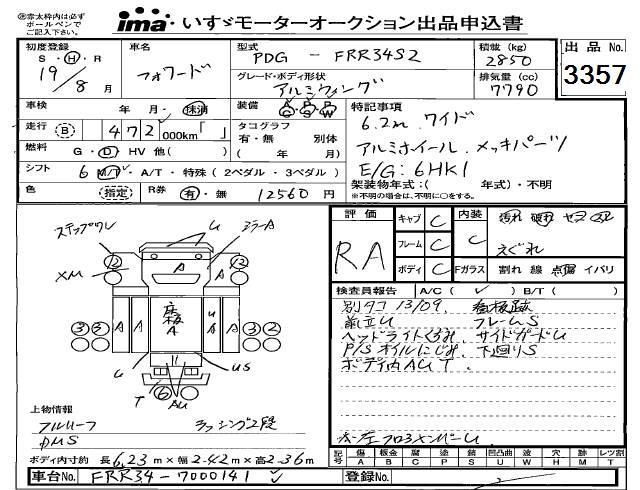 ima いすゞモーターオークション出品申込書
㊟赤太枠内は必ず
ボールペンで
ご記入下さい。
初度登録
S・H・R
19年
8月
車名
フォワード
型式
PDG － FRR34S2
グレード・ボディ形状
アルミウィング
積載 (kg)
2850
排気量 (cc)
7790
出品 No.
3357
車検
年 月・抹消
装備
A/C P/S P/W
特記事項
6.2m ワイド
アルミホイール、メッキパーツ
E/G: 6HK1
走行 (B) 472,000km「 」
タコグラフ
有・無 別体
( 年 月)
燃料
G・D・HV 他( )
シフト
6 M/T・A/T・特殊 (2ペダル・3ペダル)
架装物年式:( 年式)・不明
※不明の場合は、不明に○をする。
色
(指定)
R券
有・無 12560円
評価
RA
キャブ C
フレーム C
ボディ C
内装
C
汚れ 破れ ヤニ
えぐれ
Fガラス
割れ 線 点傷 イバリ
検査員報告
A/C( ✓ ) B/T( )
別タコ 13/09、看板跡
前立U フレームS
ヘッドライトくもり、サイドガードU
P/Sオイルにじみ、下廻りS
ボディ内AUT.
ステップワレ
U
ミラーA
12
A
12
XM
A
A
床板
A
A
U
A
A
3
3
3
2
U
US
T
6
AU
上物情報
フルハーフ
ラッシング2段
ボディ内寸約 長6.23m×幅2.42m×高2.36m
記号
傷 A
板金 B
腐 C
塗 P
錆 S
凹凸曲 U
波 W
穴 H
跡 M
レツ割 T
車台No.
FRR34-7000141
登録No.